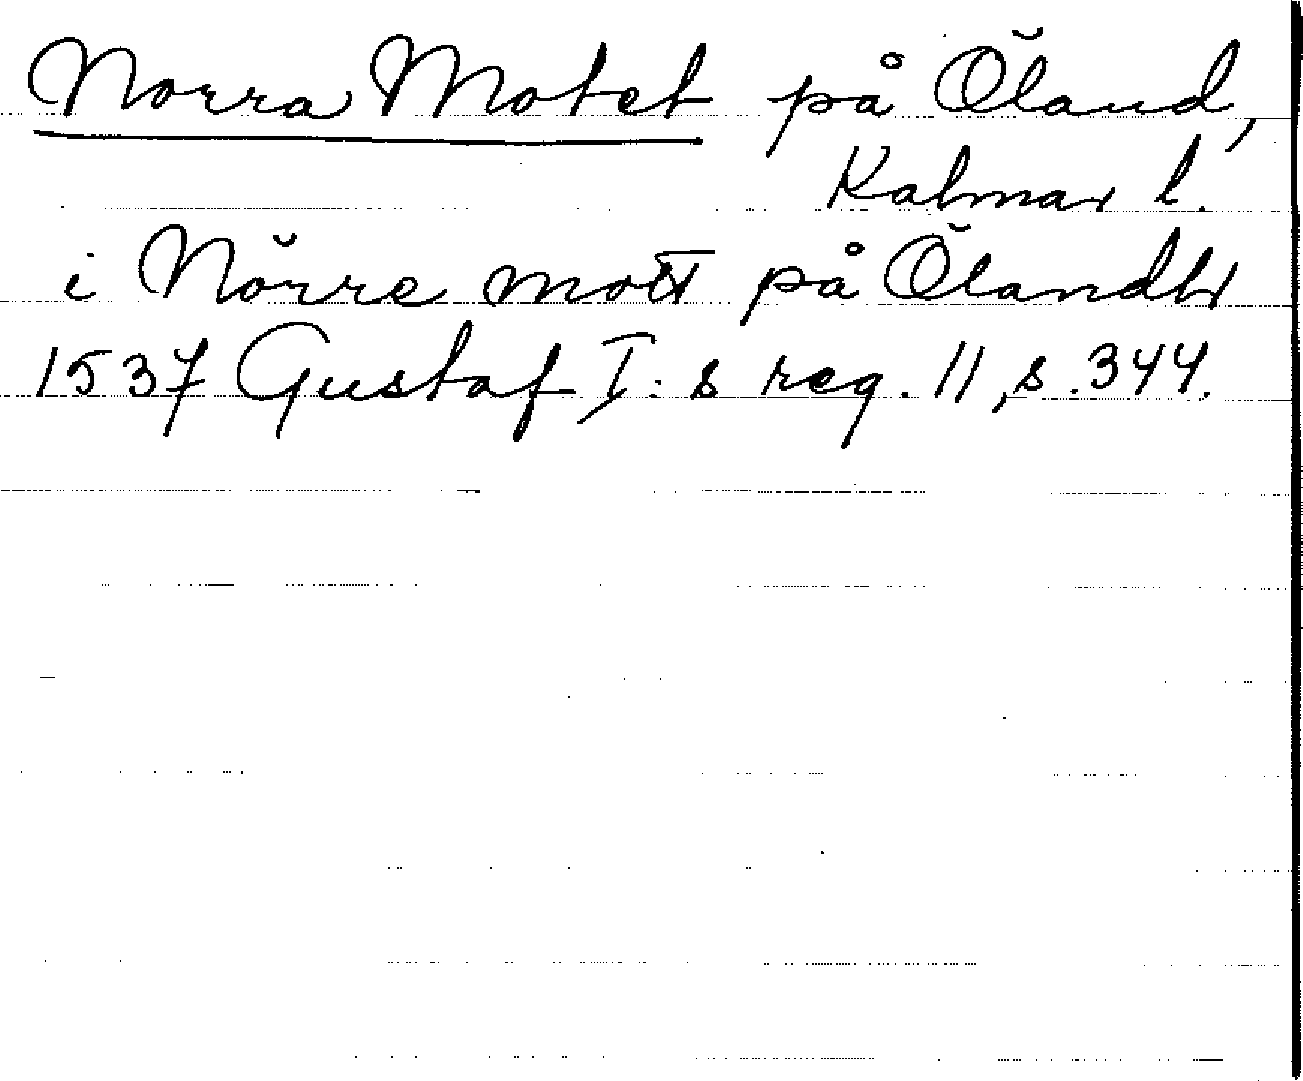 Norra Motet på Öland,
Kalmar l.
i Nörre mott på Ölandh
1537 Gustaf I:s reg. 11, s. 344.